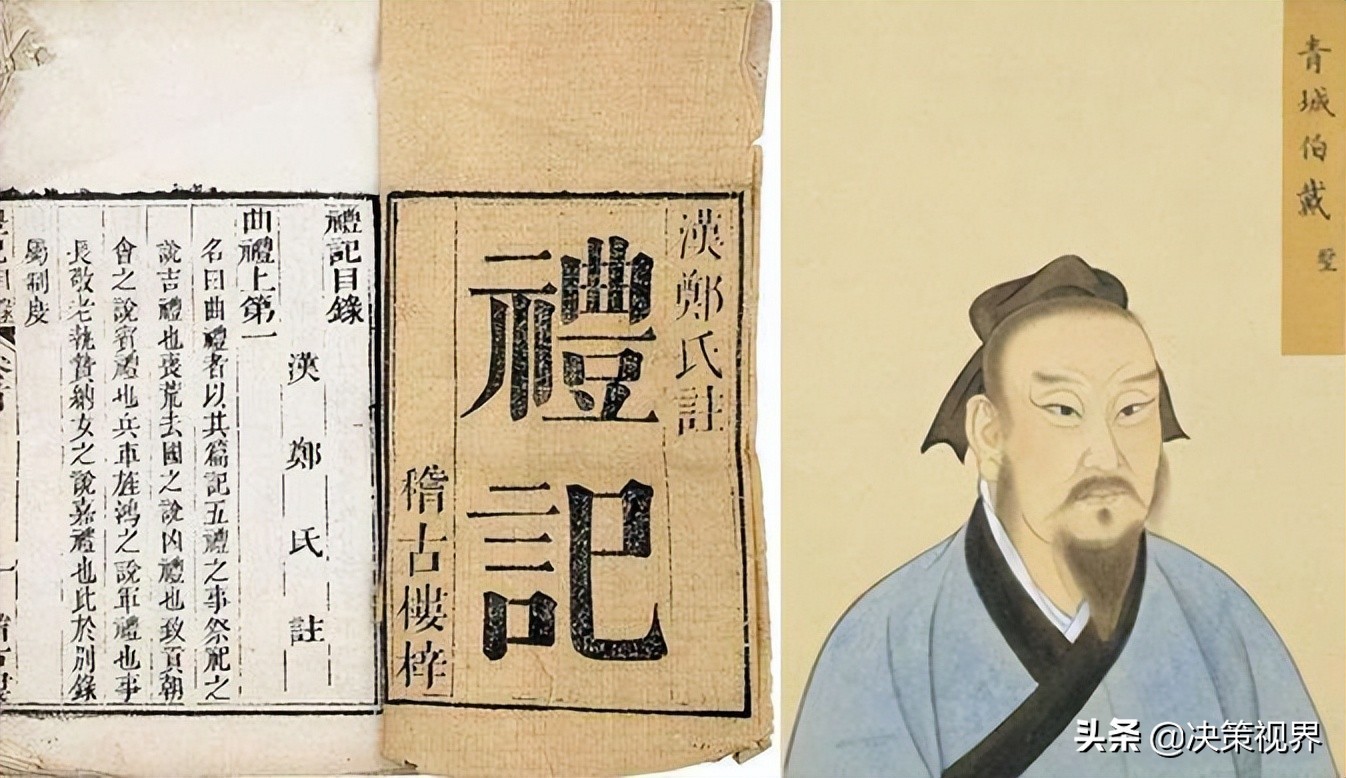 漢鄭氏註
禮記
稽古樓梓
禮記目錄
漢鄭氏註
曲禮上第一
名曰曲禮者以其篇記五禮之事祭祀之
說吉禮也喪荒去國之說凶禮也致貢朝
會之說賓禮也兵車旌鴻之說軍禮也事
長敬老執贄納女之說嘉禮也此於別錄
屬制度
青城伯戴
头条 @决策视界